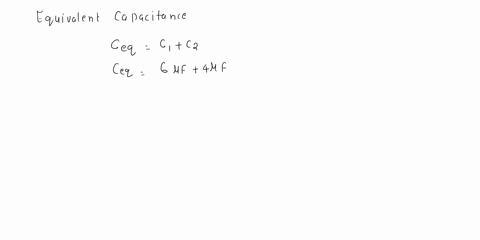 Equivalent Capacitance
Ceq = C1 + C2
Ceq = 6 μF + 4 μF